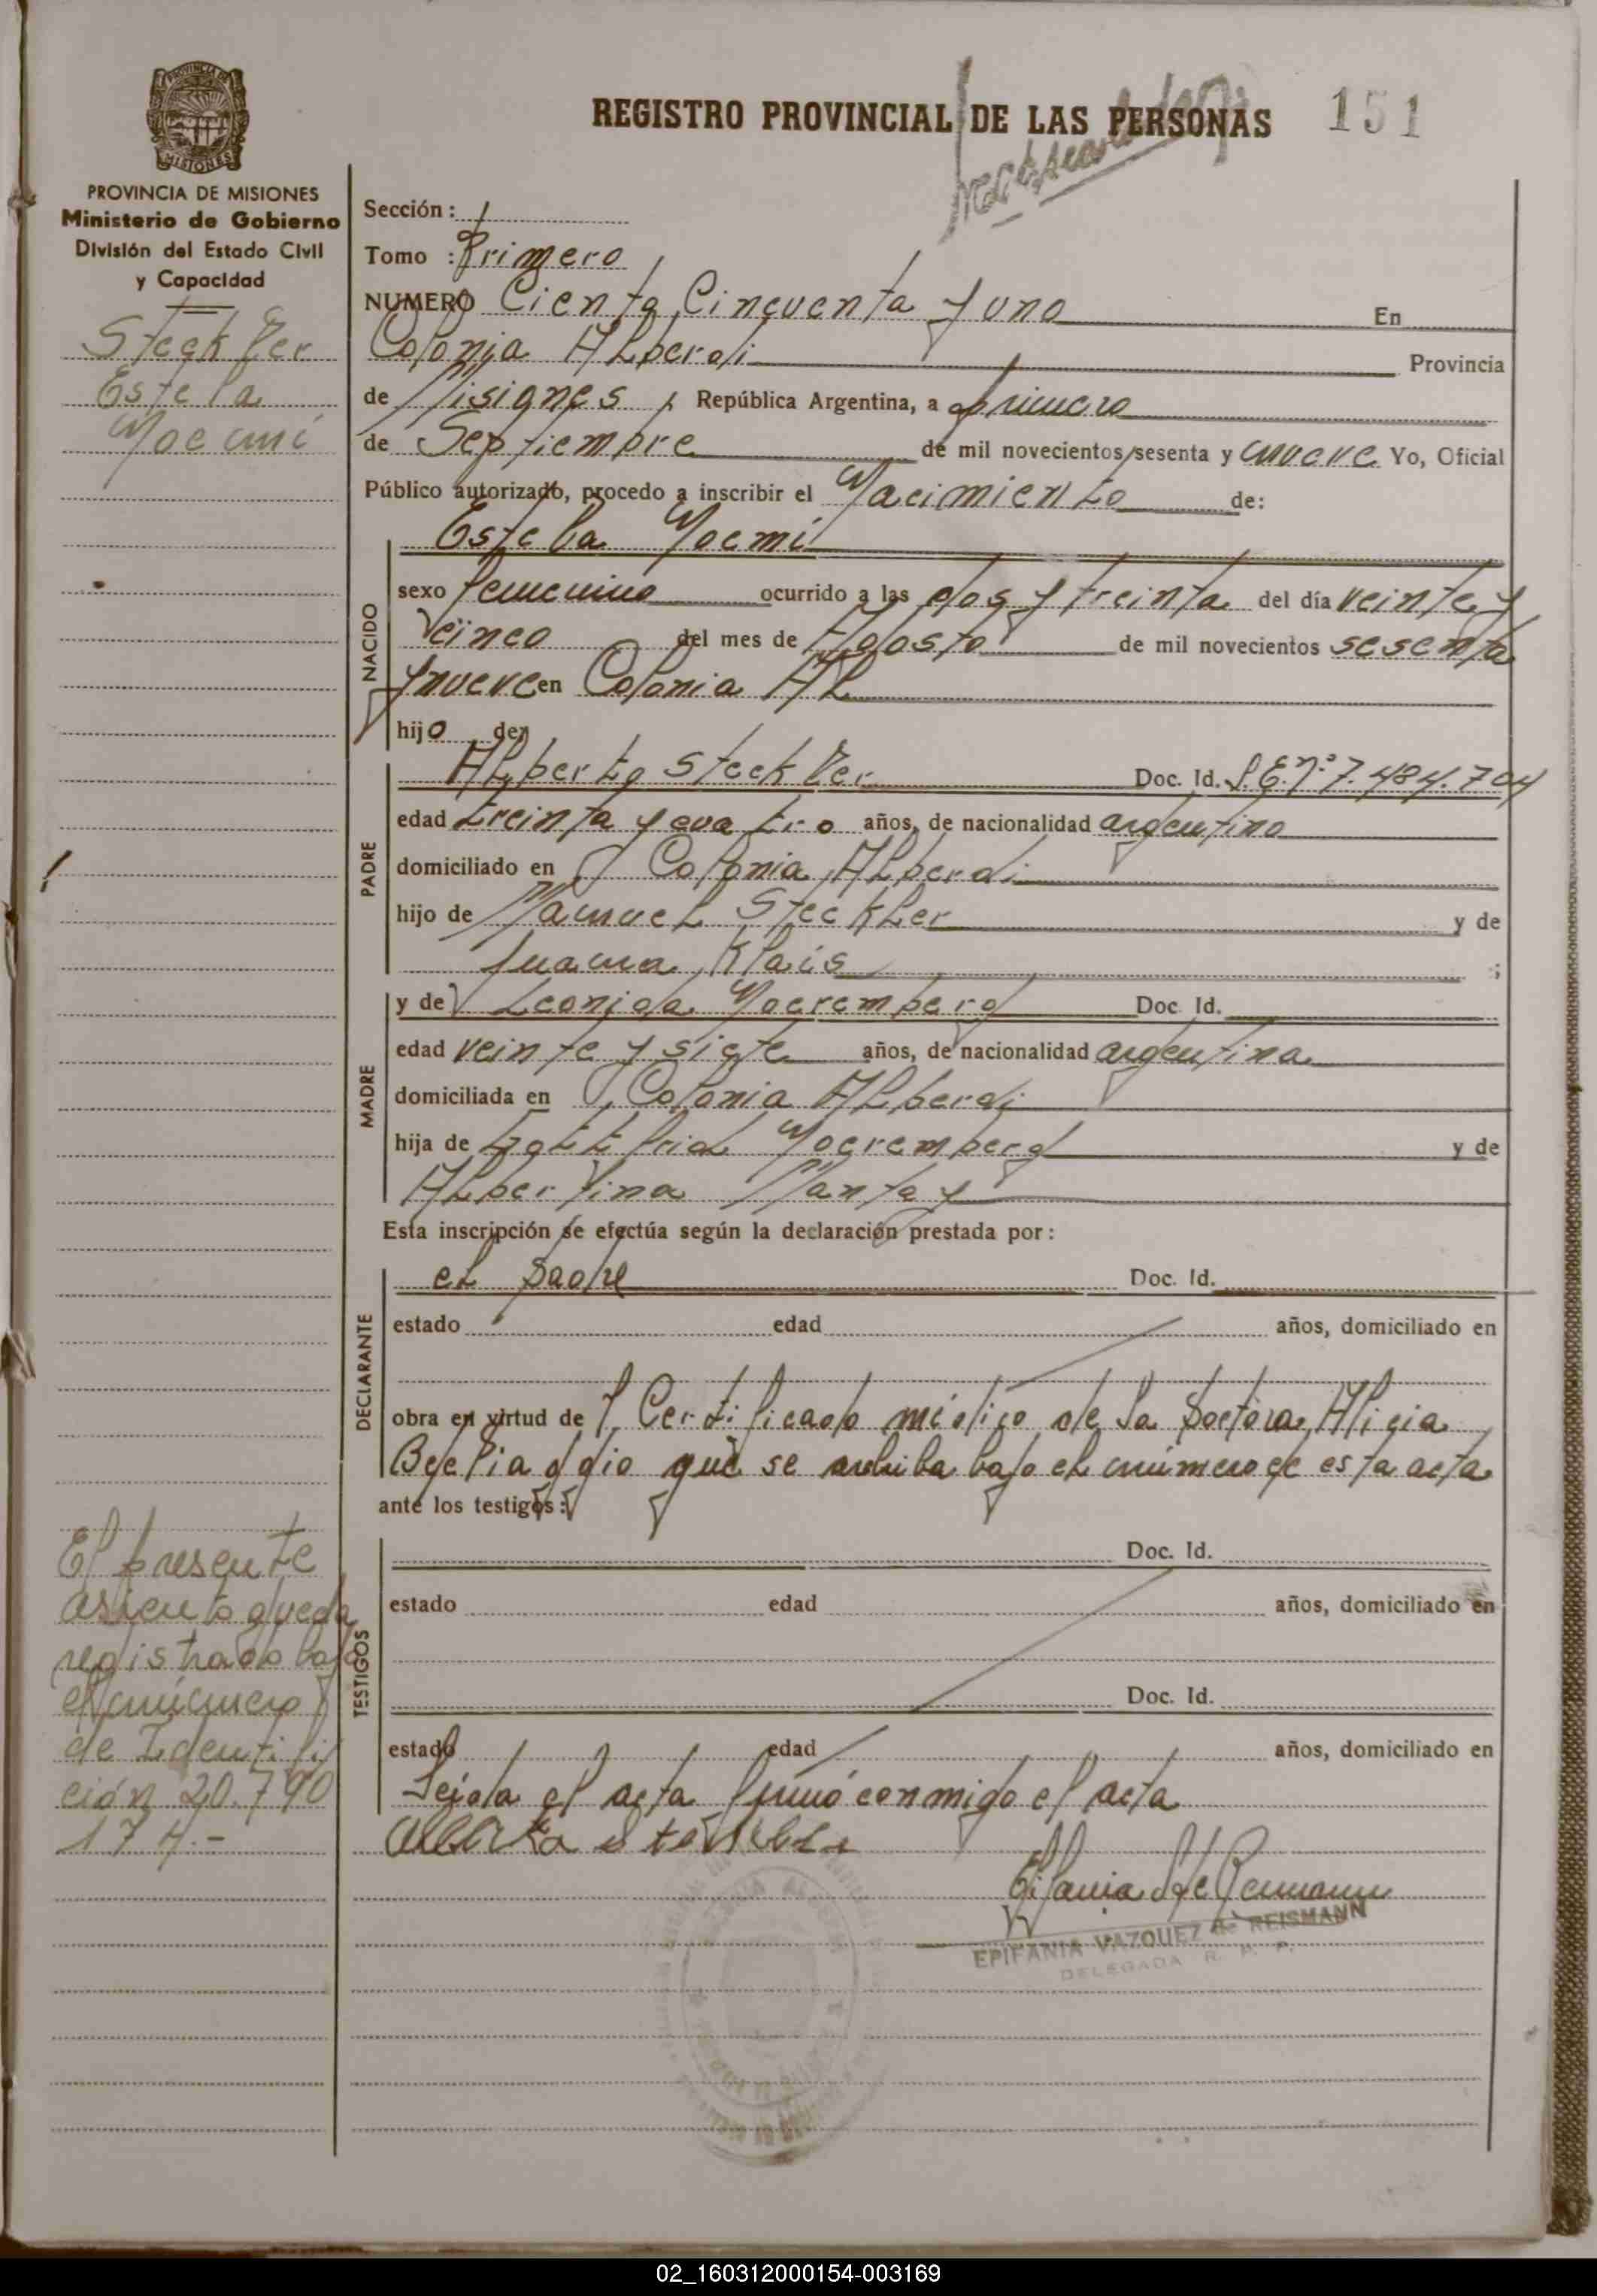 REGISTRO PROVINCIAL DE LAS PERSONAS 151
PROVINCIA DE
MISIONES
PROVINCIA DE MISIONES
Ministerio de Gobierno
División del Estado Civil
y Capacidad
Steckler
Estela
Noemí
Sección: 1
Tomo : Primero
NUMERO Ciento Cincuenta y uno En
Colonia Alberdi Provincia
de Misiones, República Argentina, a primero
de Septiembre de mil novecientos sesenta y nueve Yo, Oficial
Público autorizado, procedo a inscribir el Nacimiento de:
NACIDO
Estela Noemí
sexo femenino ocurrido a las dos y treinta del día veinte y
cinco del mes de Agosto de mil novecientos sesenta
y nueve en Colonia Al
hijo de
PADRE
Alberto Steckler Doc. Id. L.E.Nº 7.484.704
edad treinta y cuatro años, de nacionalidad argentino
domiciliado en Colonia Alberdi
hijo de Manuel Steckler y de
Juana Klais ;
MADRE
y de Leonida Noeremberg Doc. Id.
edad veinte y siete años, de nacionalidad argentina
domiciliada en Colonia Alberdi
hija de Noeremberg y de
Albertina Mantay
Esta inscripción se efectúa según la declaración prestada por:
DECLARANTE
el padre Doc. Id.
estado edad años, domiciliado en
obra en virtud de Certificado médico de la Doctora Alicia
que se archiba bajo el número de esta acta
ante los testigos:
TESTIGOS
Doc. Id.
estado edad años, domiciliado en
Doc. Id.
estado edad años, domiciliado en
Leida el acta firmó conmigo el acta
El presente
asiento queda
registrado bajo
el número
de Identifi
ción 20.790
174.-
EPIFANIA VAZQUEZ de REISMANN
DELEGADA R. P. P.
02_160312000154-003169